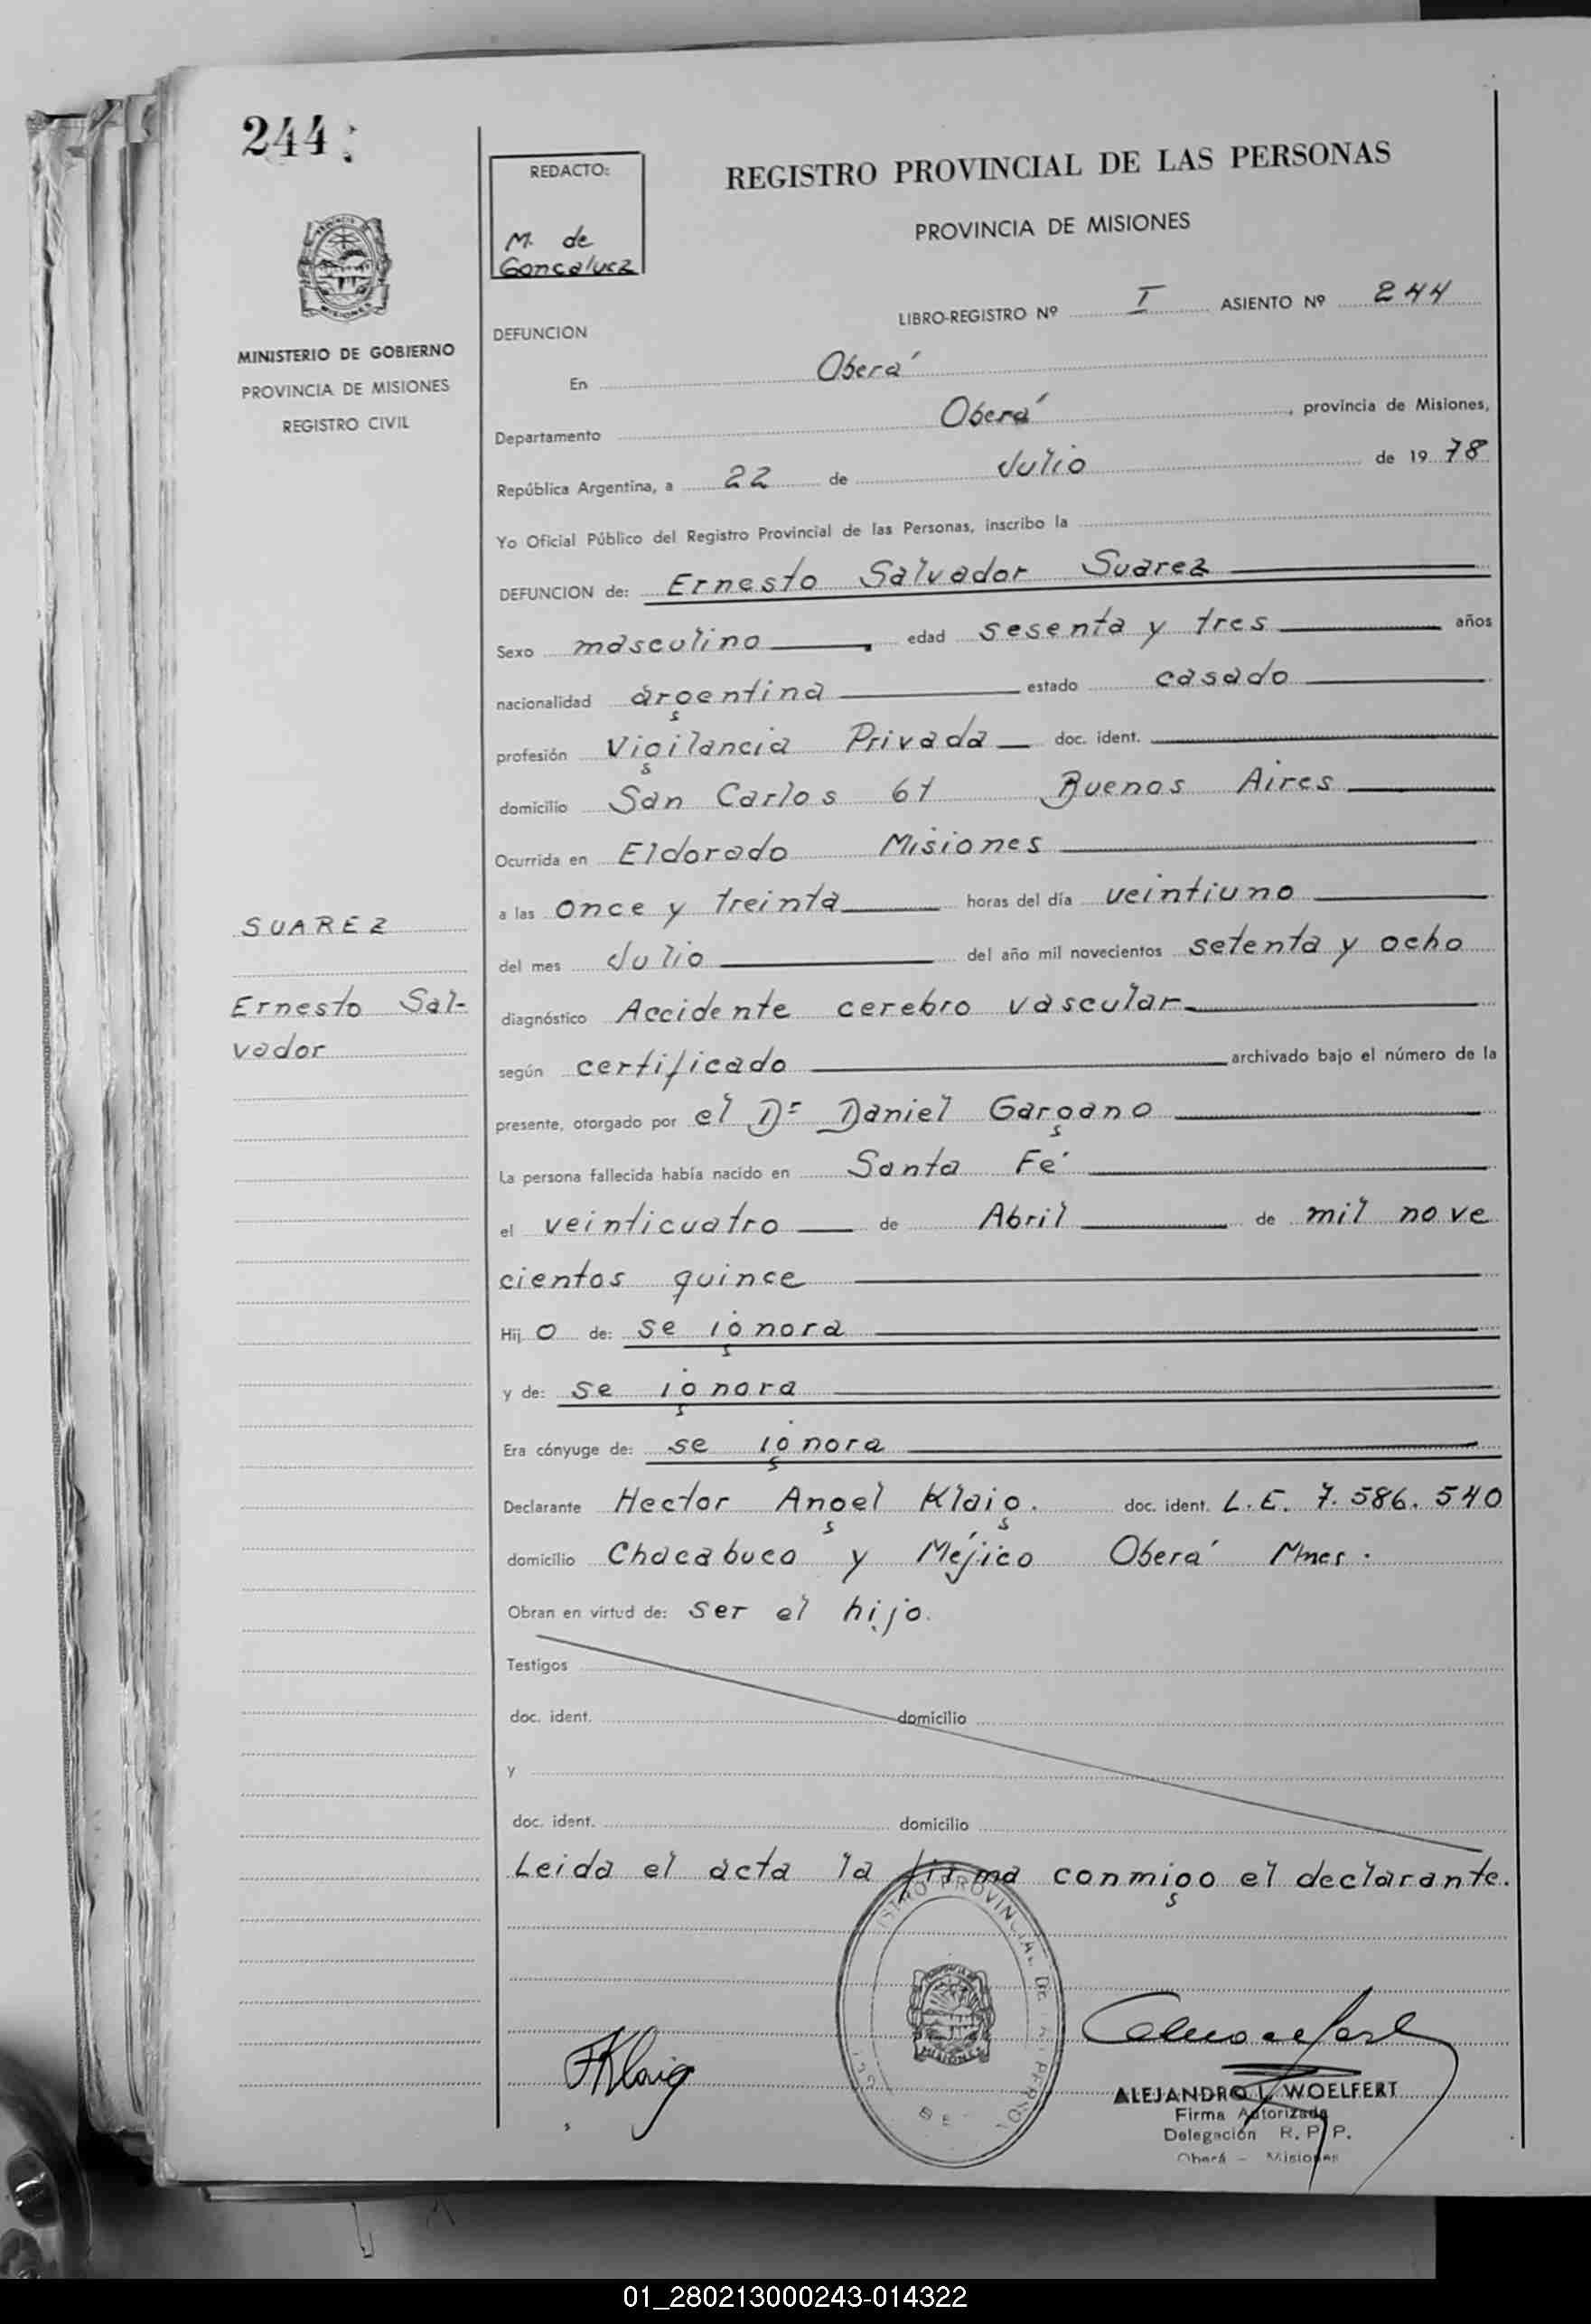 244
REDACTO:
M. de
Goncalvez
REGISTRO PROVINCIAL DE LAS PERSONAS
PROVINCIA DE MISIONES
LIBRO-REGISTRO Nº I ASIENTO Nº 244
MINISTERIO DE GOBIERNO
PROVINCIA DE MISIONES
REGISTRO CIVIL
DEFUNCION
En Oberá
Departamento Oberá, provincia de Misiones,
República Argentina, a 22 de Julio de 1978
Yo Oficial Público del Registro Provincial de las Personas, inscribo la
DEFUNCION de: Ernesto Salvador Suarez
Sexo masculino, edad sesenta y tres años
nacionalidad argentina estado casado
profesión Vigilancia Privada doc. ident.
domicilio San Carlos 61 Buenos Aires
Ocurrida en Eldorado Misiones
a las once y treinta horas del día veintiuno
del mes Julio del año mil novecientos setenta y ocho
SUAREZ
Ernesto Sal-
vador
diagnóstico Accidente cerebro vascular
según certificado archivado bajo el número de la
presente, otorgado por el Dr Daniel Gargano
La persona fallecida había nacido en Santa Fé
el veinticuatro de Abril de mil nove
cientos quince
Hijo de: se ignora
y de: se ignora
Era cónyuge de: se ignora
Declarante Hector Angel Klaig. doc. ident. L.E. 7.586.540
domicilio Chacabuco y Méjico Oberá Mnes.
Obran en virtud de: ser el hijo.
Testigos
doc. ident. domicilio
y
doc. ident. domicilio
Leida el acta la firma conmigo el declarante.
HKlaig
ALEJANDRO L. WOELFERT
Firma Autorizada
Delegación R. P. P.
Oberá - Misiones
01_280213000243-014322